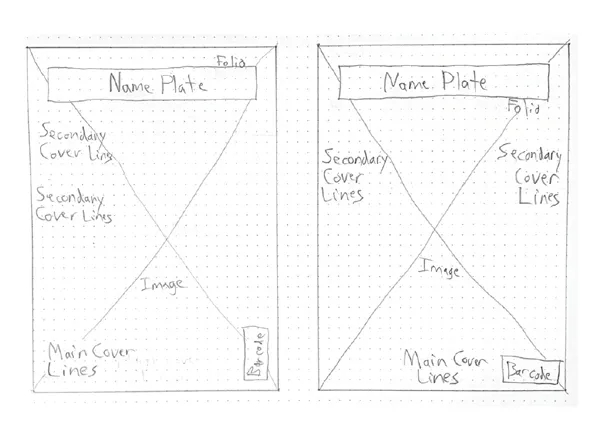 Folio
Name Plate
Secondary
Cover Line
Secondary
Cover Lines
Image
Main Cover
Lines
Barcode
Name Plate
Folio
Secondary
Cover
Lines
Secondary
Cover
Lines
Image
Main Cover
Lines
Barcode